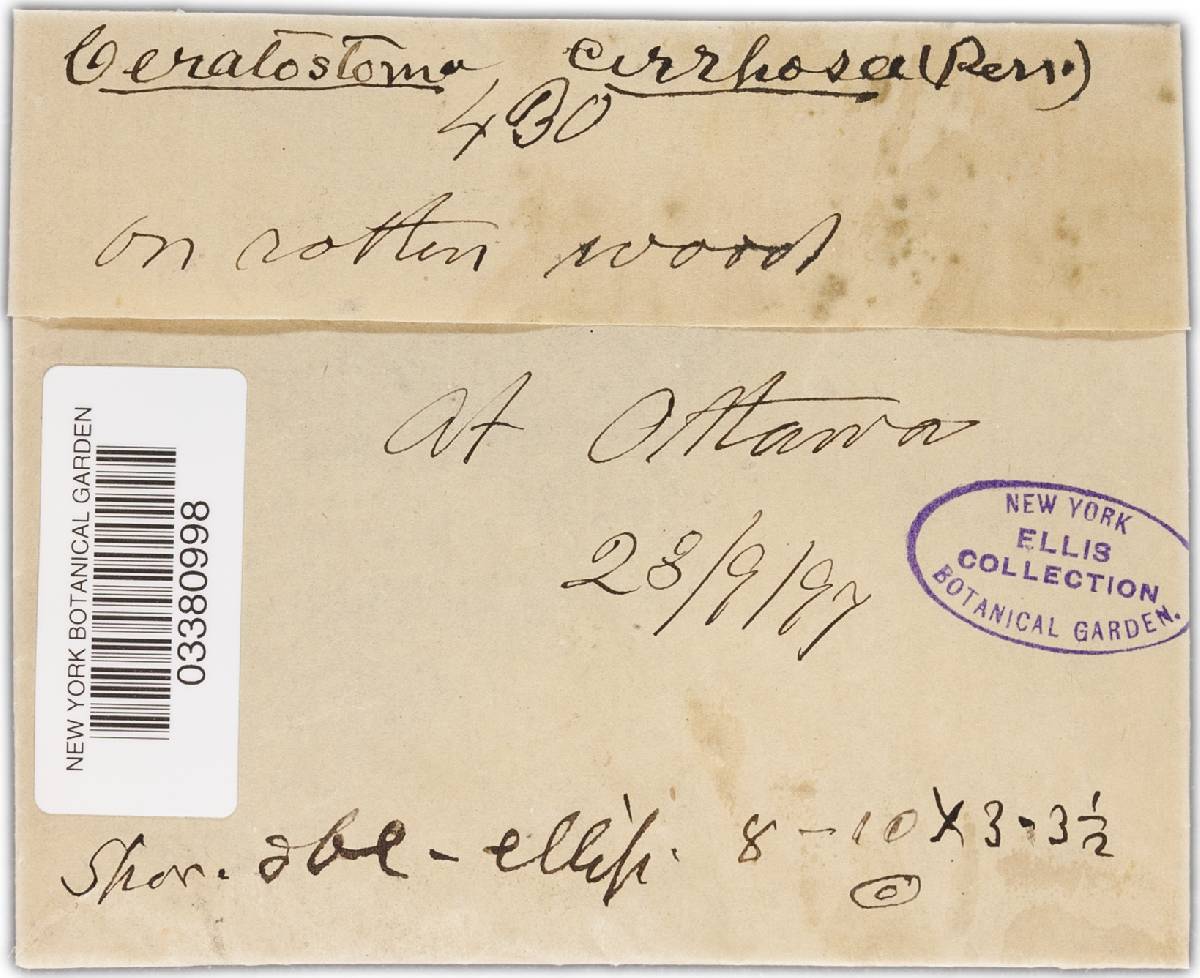 Ceratostoma cirrhosa (Pers.)
430
on rotten wood
at Ottawa
28/9/97
NEW YORK
ELLIS
COLLECTION
BOTANICAL GARDEN.
NEW YORK BOTANICAL GARDEN
03380998
Spor. obl - ellip. 8 - 10 X 3 - 3 1/2